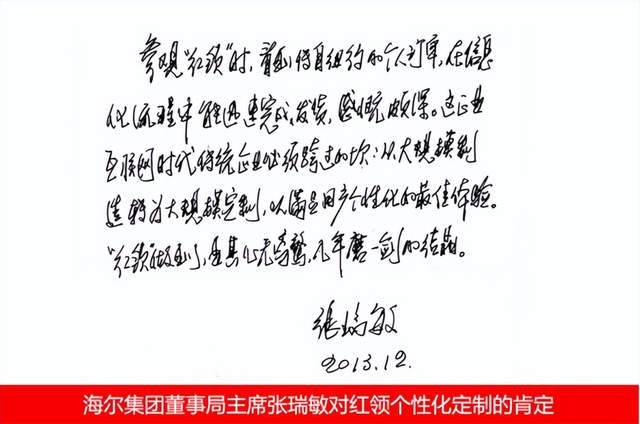 参观“红领”时，看到传自纽约的个人订单，在信息
化流程中能迅速完成、发货，感慨颇深。这正是
互联网时代传统企业必须跨过的坎：从大规模制
造转为大规模定制，以满足用户个性化的最佳体验。
“红领”做到了，是其心无旁骛，几年磨一剑的结果。
张瑞敏
2013.12.
海尔集团董事局主席张瑞敏对红领个性化定制的肯定